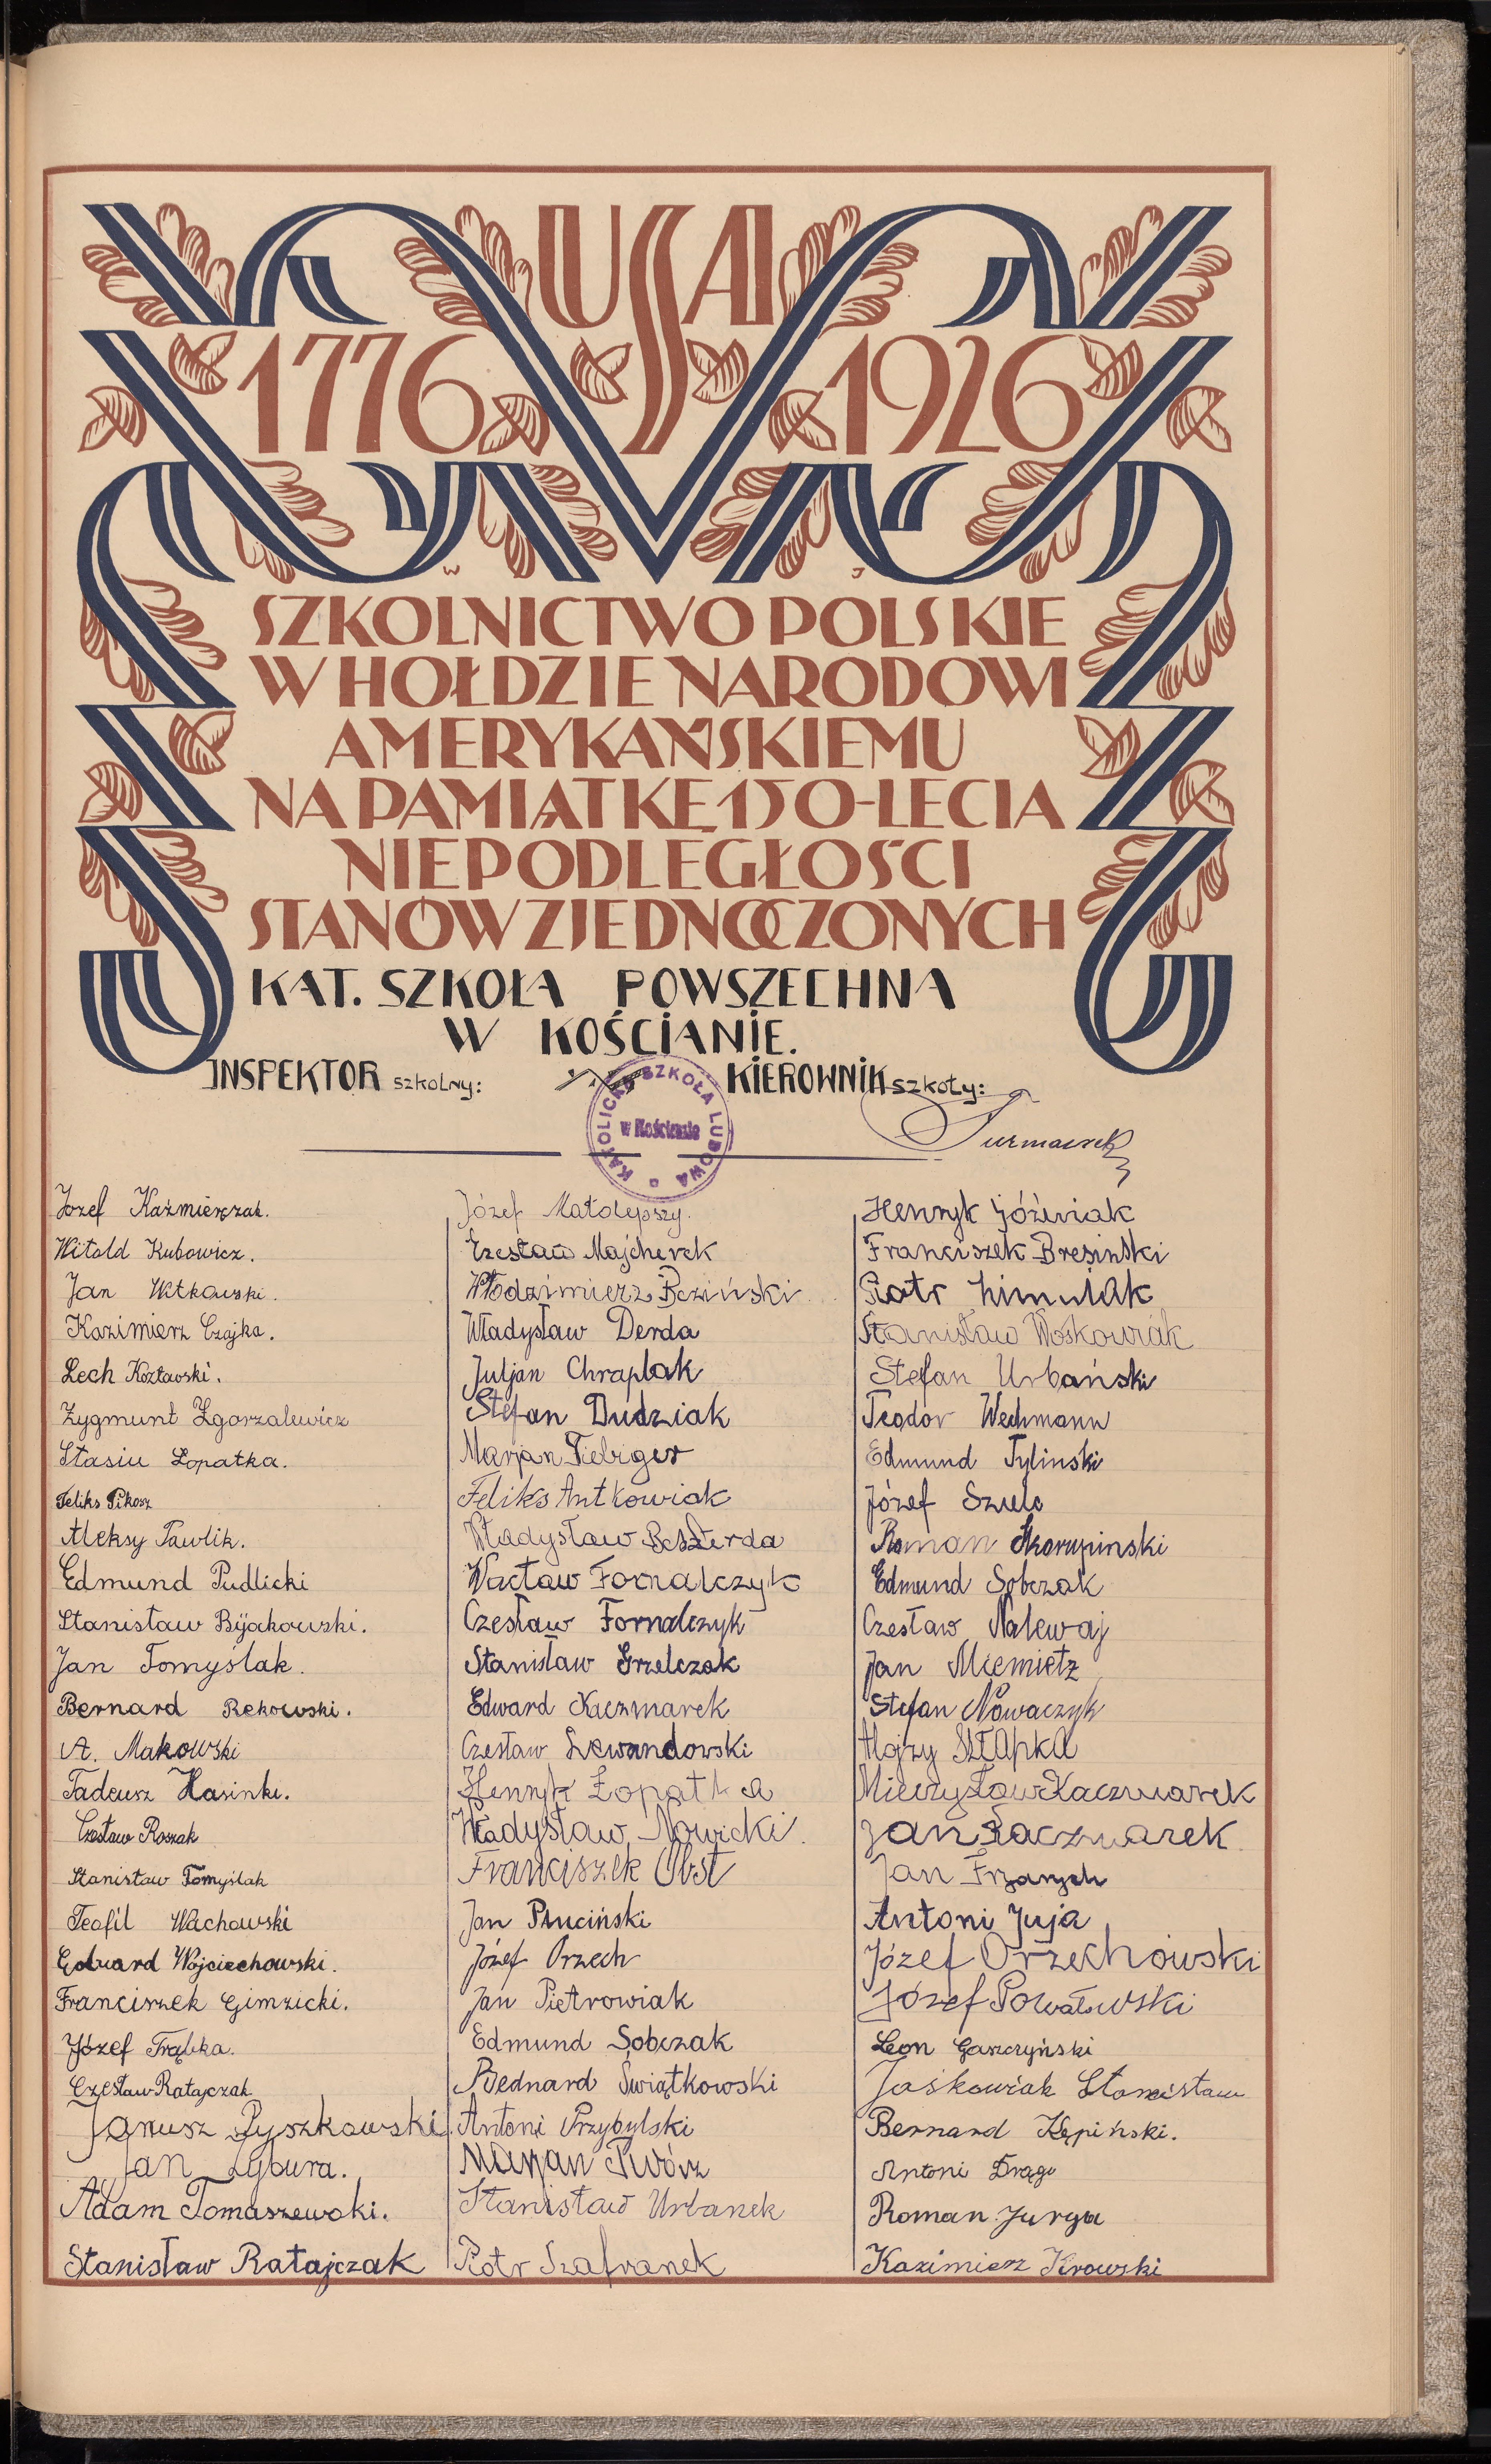 USA
1776 1926
W J
SZKOLNICTWO POLSKIE
W HOŁDZIE NARODOWI
AMERYKAŃSKIEMU
NA PAMIĄTKĘ 150-LECIA
NIEPODLEGŁOŚCI
STANÓW ZJEDNOCZONYCH
KAT. SZKOŁA POWSZECHNA
W KOŚCIANIE.
INSPEKTOR szkolny:
KIEROWNIK szkoły:
KATOLICKA SZKOŁA LUDOWA
w Kościanie
Józef Kaźmierczak.
Witold Kubowicz.
Jan Witkowski.
Kazimierz Czajka.
Lech Kozłowski.
Zygmunt Zgorzalewicz
Stasiu Łopatka.
Feliks Pikosz
Aleksy Pawlik.
Edmund Pudlicki
Stanisław Bijakowski.
Jan Tomyślak.
Bernard Rekowski.
A. Makowski
Tadeusz Hasinki.
Czesław Roszak
Stanisław Tomyślak
Teofil Wachowski
Edward Wojciechowski.
Franciszek Gimzicki.
Józef Trąbka.
Czesław Ratajczak
Janusz Pyszkowski
Jan Łybura.
Adam Tomaszewski.
Stanisław Ratajczak
Józef Małolepszy.
Czesław Majcherek
Włodzimierz Bcziński
Władysław Derda
Juljan Chraplak
Stefan Dudziak
Marjan Fiebiger
Feliks Antkowiak
Władysław Beszterda
Wacław Fornalczyk
Czesław Fornalczyk
Stanisław Grzelczak
Edward Kaczmarek
Czesław Lewandowski
Henryk Łopatka
Władysław Nowicki.
Franciszek Obst
Jan Pluciński
Józef Orzech
Jan Pietrowiak
Edmund Sobczak
Bednard Świątkowski
Antoni Przybylski
Marjan Twórz
Stanisław Urbanek
Piotr Szafranek
Henryk Jóźwiak
Franciszek Bresinski
Piotr Limulak
Stanisław Woskowiak
Stefan Urbański
Teodor Wechmann
Edmund Tylinski
Józef Szulc
Roman Skorupinski
Edmund Sobczak
Czesław Nalewaj
Jan Miemietz
Stefan Nowaczyk
Alojzy Szłapka
Mieczysław Kaczmarek
Jan Kaczmarek
Jan
Antoni Juja
Józef Orzechowski
Józef Powałowski
Leon Garczyński
Jaśkowiak Stanisław
Bernard Kępiński.
Antoni Drąge
Roman Jurga
Kazimierz Kirowski